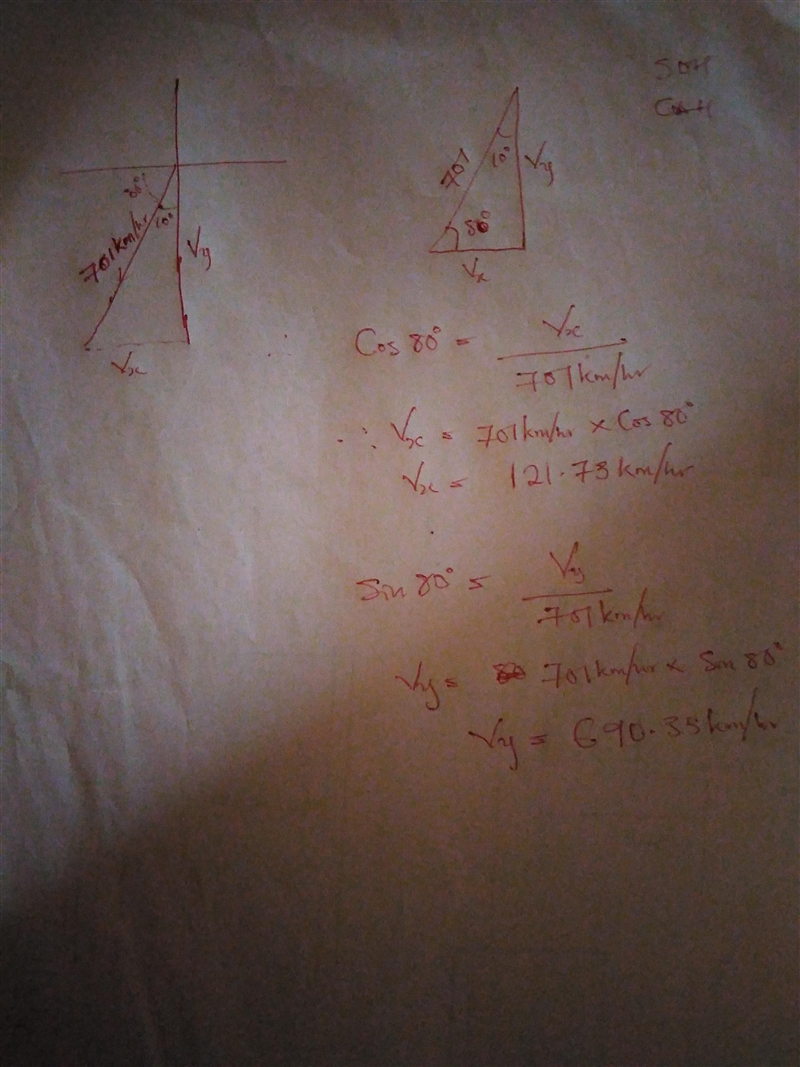 SOH
CAH
80°
10°
701km/hr
Vy
Vx
701
10°
Vy
80°
Vx
∴ Cos 80° = Vx / 701km/hr
∴ Vx = 701km/hr × Cos 80°
Vx = 121.73 km/hr
Sin 80° = Vy / 701km/hr
Vy = 701km/hr × Sin 80°
Vy = 690.35km/hr